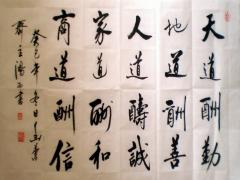 天道酬勤
地道酬善
人道醻誠
家道酬和
商道酬信
癸巳年冬日
書